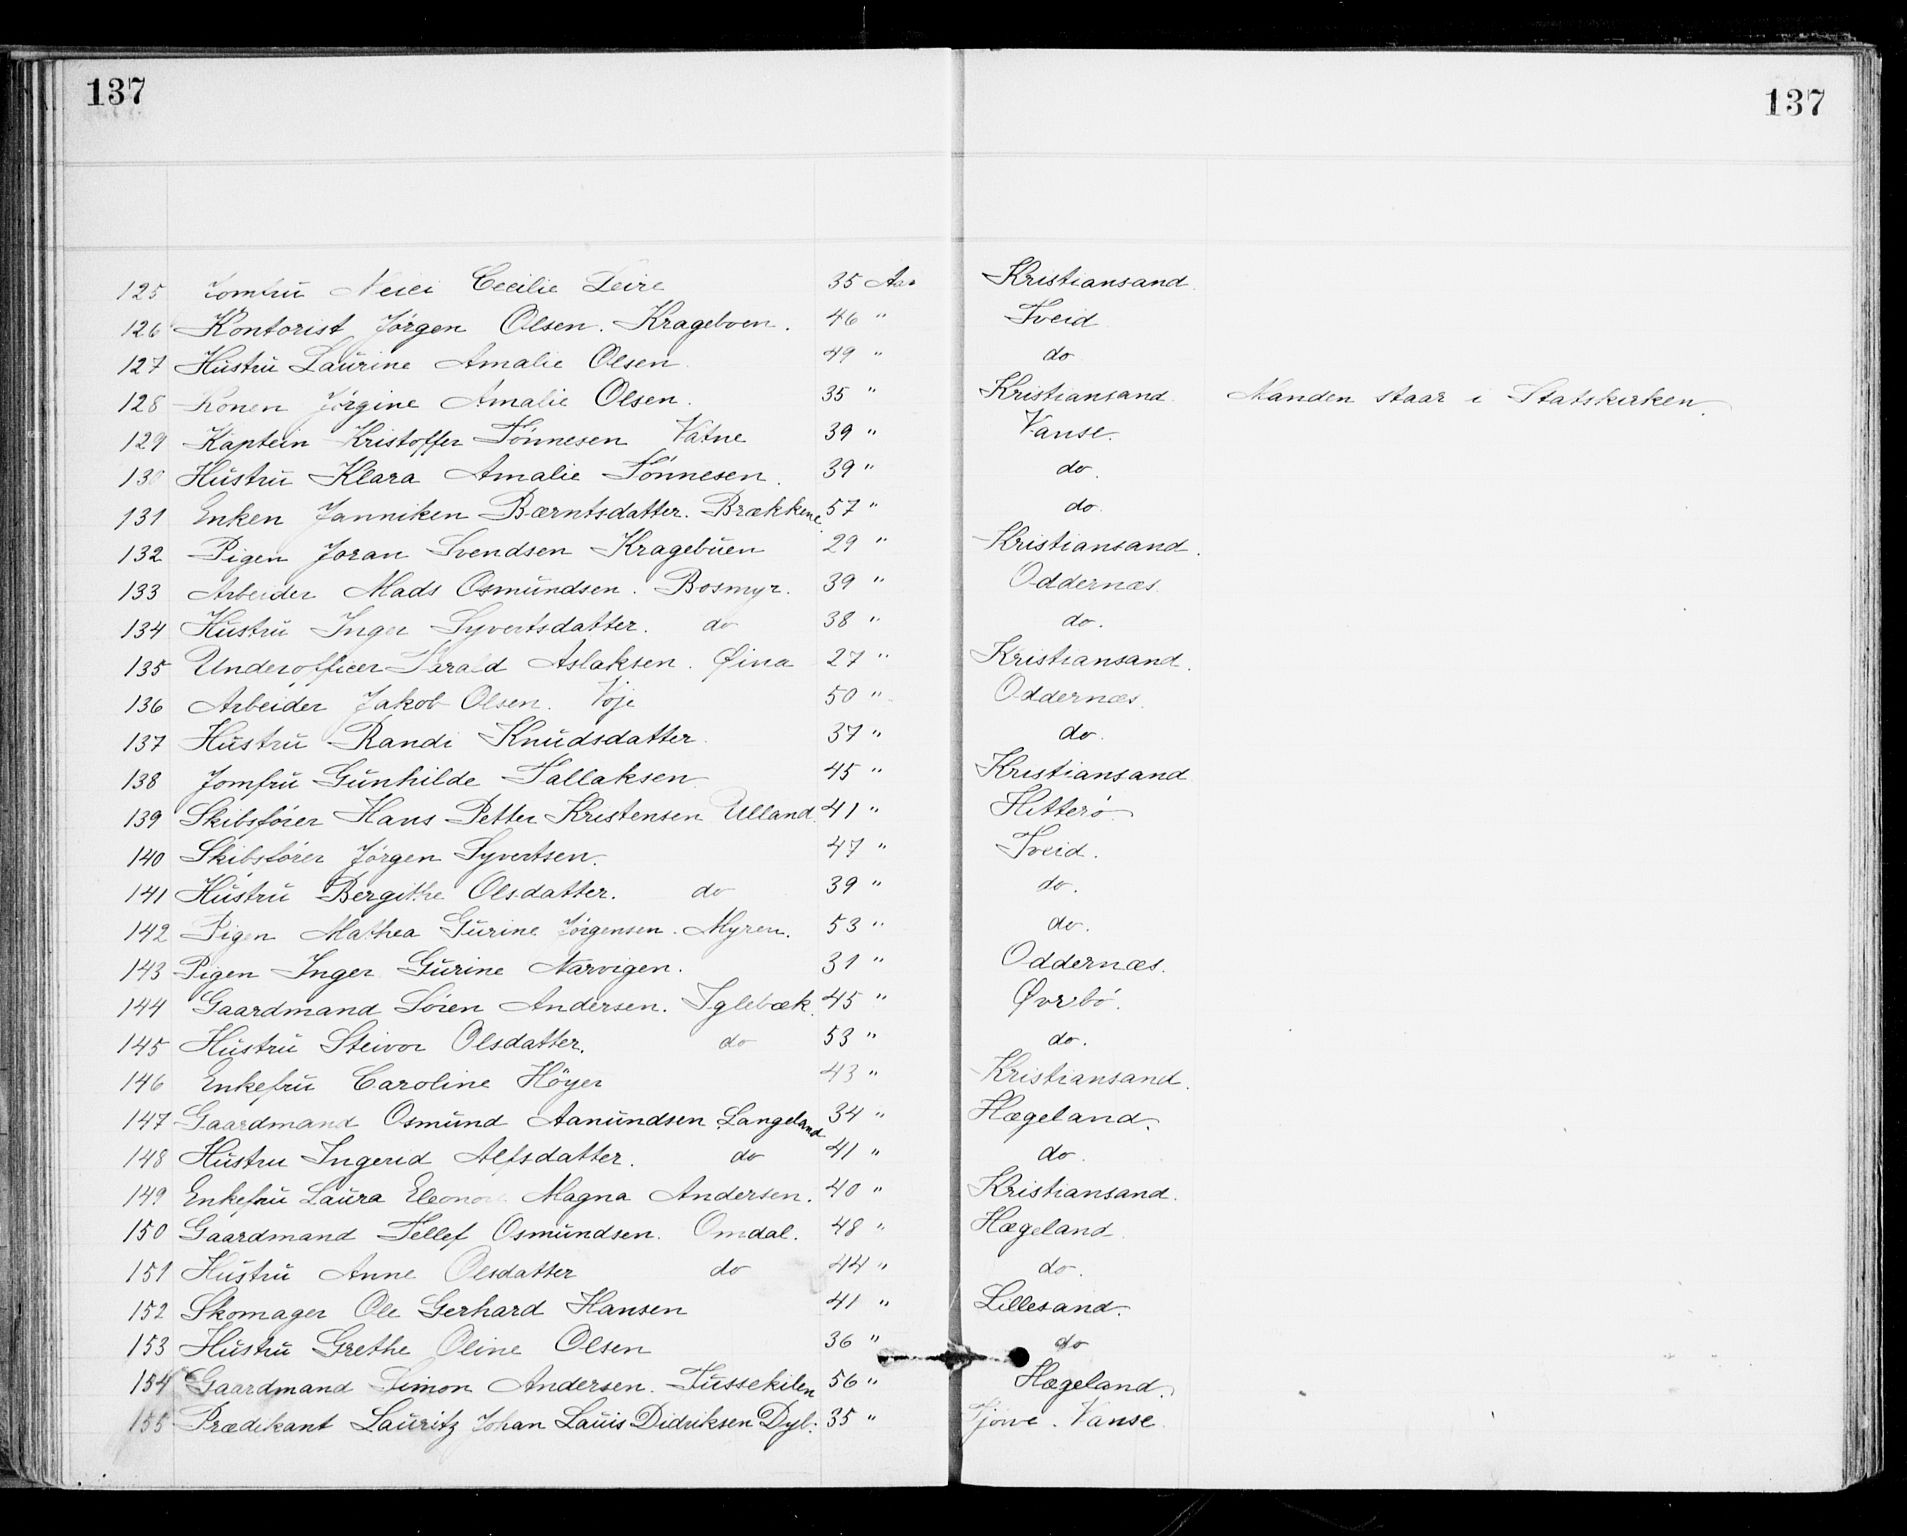 137 137
125 Jomfru Cecilie Leire 35 Aar Kristiansand
126 Kontorist Jörgen Olsen. Krageboen. 46 " Tveid
127 Hustru Laurine Amalie Olsen 49 " do
128 Konen Jörgine Amalie Olsen. 35 " Kristiansand. Manden staar i Statskirken.
129 Kaptein Kristoffer Tönnesen Vatne 39 " Vanse.
130 Hustru Klara Amalie Tönnesen. 39 " do.
131 Enken Janniken Bærntsdatter. Brækkene. 57 " do.
132 Pigen Joran Svendsen Kragebuen 29 " Kristiansand.
133 Arbeider Mads Osmundsen. Bosmyr. 39 " Oddernæs.
134 Hustru Inger Syvertsdatter. do 38 " do.
135 Underofficer Harald Aslaksen. Øina 27 " Kristiansand.
136 Arbeider Jakob Olsen. Voje 50 " Oddernæs.
137 Hustru Randi Knudsdatter. 37 " do.
138 Jomfru Gunhilde Tallaksen 45 " Kristiansand
139 Skibsförer Hans Petter Kristensen Ulland. 41 " Hitterö.
140 Skibsförer Jörgen Syvertsen. 47 " Tveid.
141 Hustru Bergithe Olsdatter. do 39 " do.
142 Pigen Mathea Gurine Jörgensen. Myren. 53 " do.
143 Pigen Inger Gurine Narvigen. 31 " Oddernæs.
144 Gaardmand Sören Andersen. Iglebæk. 45 " Øvrebö.
145 Hustru Steivor Olsdatter. do 53 " do.
146 Enkefru Caroline Höyer 43 " Kristiansand.
147 Gaardmand Osmund Aanundsen Langeland 34 " Hægeland.
148 Hustru Ingerid Alfsdatter. do 41 " do.
149 Enkefru Laura Eleonore Magna Andersen. 40 " Kristiansand.
150 Gaardmand Tellef Osmundsen. Omdal. 48 " Hægeland
151 Hustru Anne Olsdatter do 44 " do.
152 Skomager Ole Gerhard Hansen 41 " Lillesand.
153 Hustru Grethe Oline Olsen 36 " do
154 Gaardmand Simon Andersen. Tussekilen 56 " Hægeland.
155 Prædikant Lauritz Johan Lauis Didriksen Dyb. 35 " Vanse.